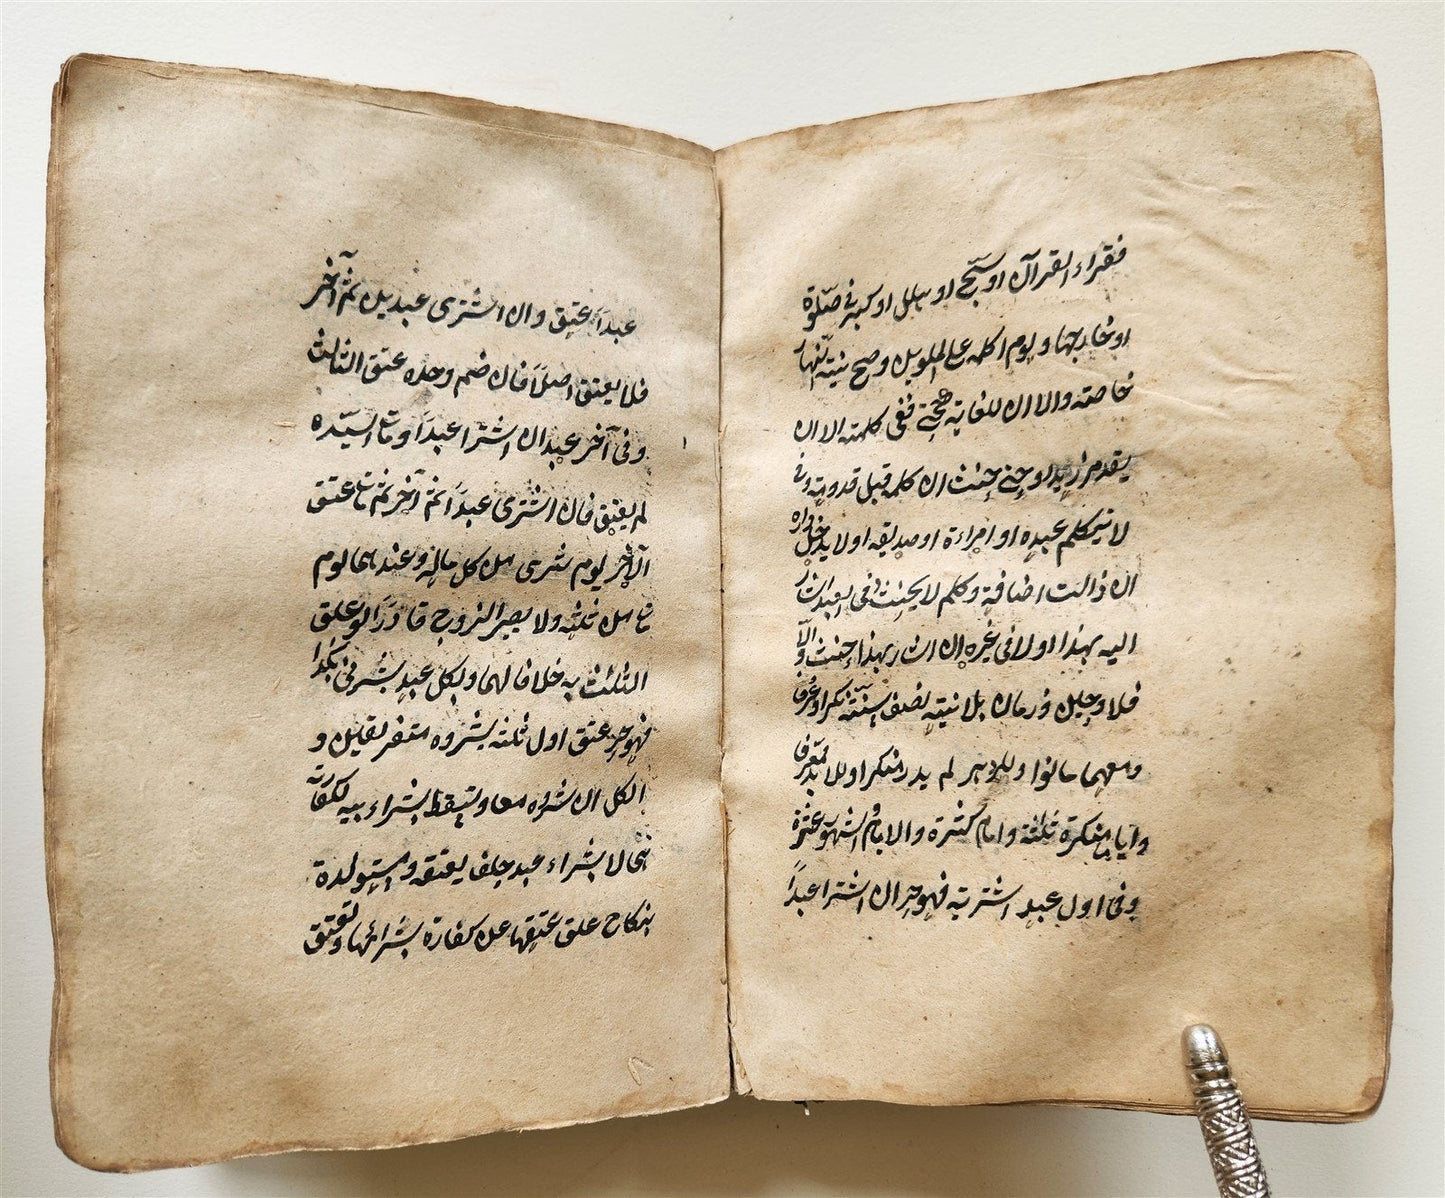 فقراء القرآن او سبح او هلل او كبر في صلوة
او خارجها ويوم اكلمه على الملوين وصح نية النهار
خاصة والا ان للغاية كحتى ففي كلمته الا ان
يقدم زيد او حتى حنث ان كلمه قبل قدومه وفي
لا يكلم عبده او امراءة او صديقه او لا يدخل داره
ان زالت اضافة وكلم لا يحنث في العبد اشار
اليه بهذا او لا وفي غيره ان اشار بهذا حنث والا
فلا وحين وزمان بلا نية نصف سنة نكر او عرف
ومعها ما نوا وللدهر لم يدر منكرا وللابد معرفا
وايام منكرة ثلثة وايام كثيرة والايام والشهور عشرة
وفي اول عبد اشتريه فهو حر ان اشترا عبدًا
عبدًا عتق وان اشترى عبدين ثم آخر
فلا يعتق اصلًا فان ضم وحده عتق الثالث
وفي آخر عبد ان اشترا عبدًا ومات السيده
لم يعتق فان اشترى عبدًا ثم آخر ثم مات عتق
الآخر يوم شرى من كل ماله وعندهما يوم
مات من ثلثه ولا يصير الزوج فارًا لو علق
الثلث به خلافا لهما وبكل عبد بشرني بكذا
فهو حر عتق اول ثلثة بشروه متفرقين و
الكل ان بشروه معا وتسقط بشراء ابيه لكفارته
هي لا بشراء عبد حلف بعتقه ومستولدة
بنكاح علق عتقها عن كفارة بشرائها وتعتق